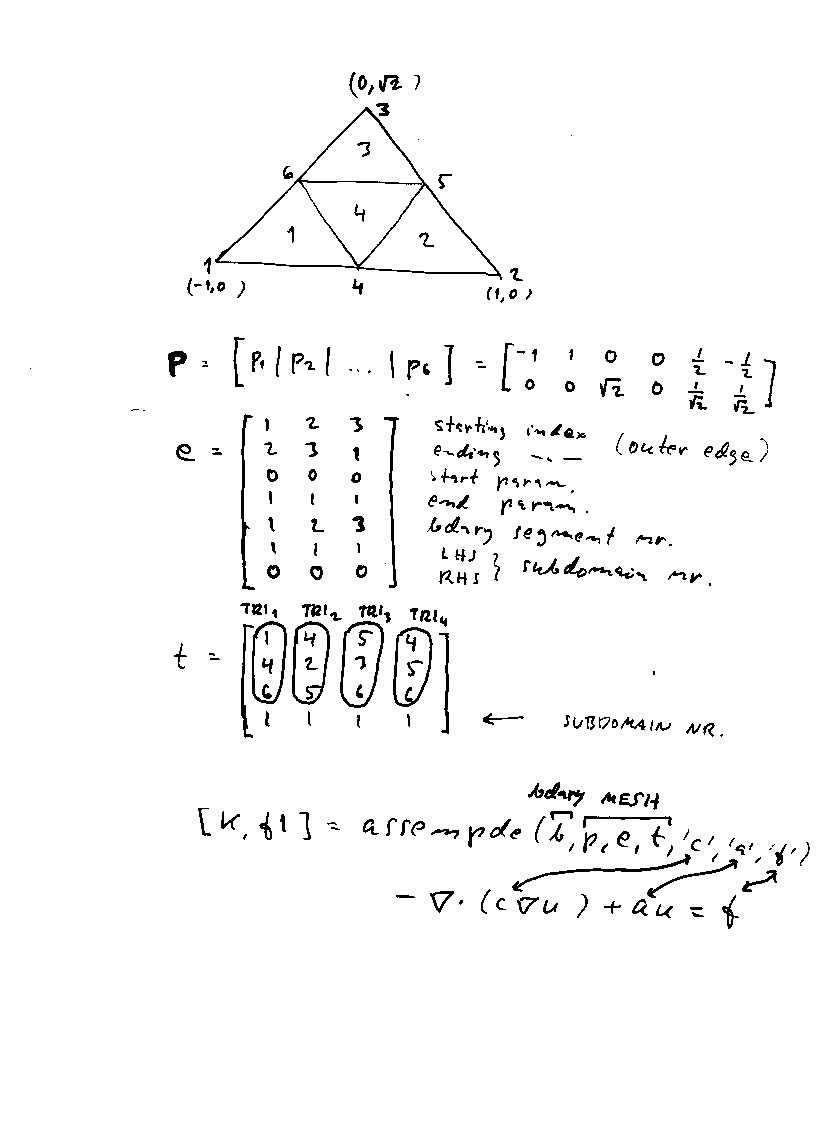 (0,√2)
3
3
6 5
4
1 2
1 2
(-1,0) 4 (1,0)
P = [ p1 | p2 | ... | p6 ] = [ -1 1 0 0 1/2 -1/2
0 0 √2 0 1/√2 1/√2 ]
e = [ 1 2 3 starting index
2 3 1 ending -.- (outer edge)
0 0 0 start param.
1 1 1 end param.
1 2 3 bdary segment nr.
1 1 1 LHS
0 0 0 ] RHS } subdomain nr.
TRI1 TRI2 TRI3 TRI4
t = [ 1 4 5 4
4 2 3 5
6 5 6 6
1 1 1 1 ] ← SUBDOMAIN NR.
bdary MESH
[K, f1] = assempde(b, p, e, t, 'c', 'a', 'f')
- ∇·(c∇u) + au = f